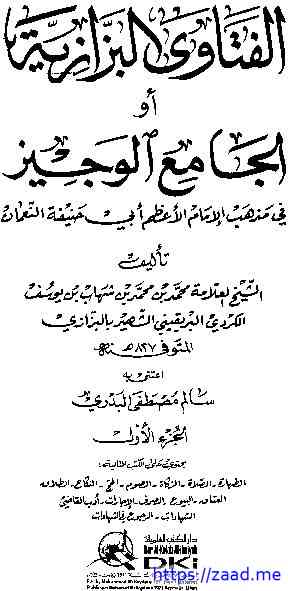 الفتاوى البزازية
أو
الجامع الوجيز
في مذهب الإمام الأعظم أبي حنيفة النعمان
تأليف
الشيخ العلامة محمد بن محمد بن شهاب بن يوسف
الكردي البريقيني الشهير بالبزازي
المتوفى ٨٢٧ هـ
اعتنى به
سالم مصطفى البدري
الجزء الأول
يحتوي على الكتب التالية:
الطهارة - الصلاة - الزكاة - الصوم - الحج - النكاح - الطلاق
العتاق - البيوع - الصرف - الإجارات - أدب القاضي
الشهادات - الرجوع في الشهادات
دار الكتب العلمية
Dar Al-Kotob Al-ilmiyah
DKi
https://zaad.me